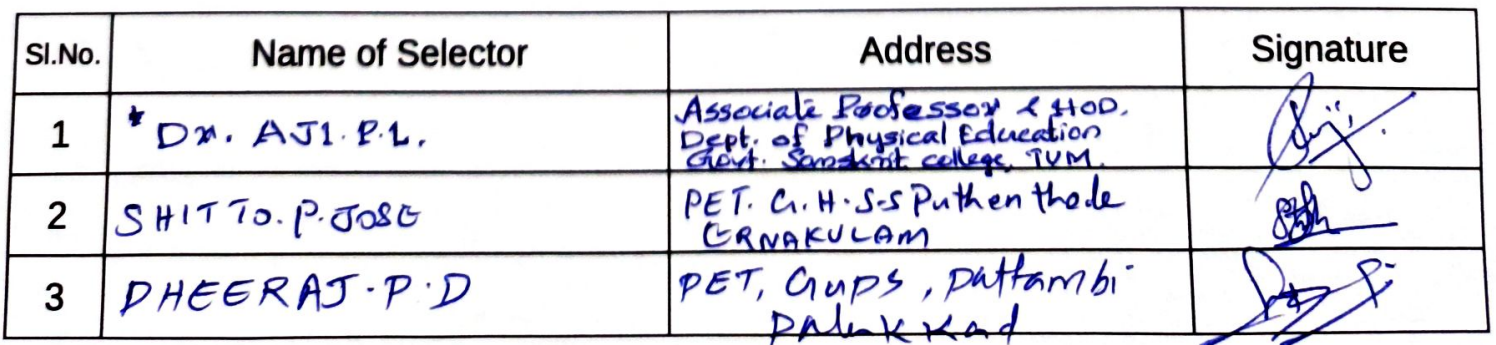 Sl.No. Name of Selector Address Signature
1 * Dr. AJI. P.L. Associate Professor & HOD.
Dept. of Physical Education
Govt. Sanskrit college, TVM.
2 SHITTO. P. JOSE PET. G.H.S.S Puthenthode
ERNAKULAM
3 DHEERAJ.P.D PET, GUPS, Pattambi
Palakkad